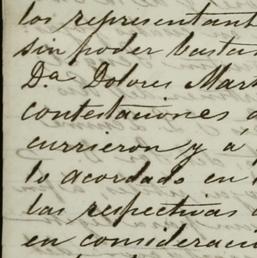 los representant
sin poder basta
D.ª Dolores Mar
contestaciones
currieron y á
lo acordado en
las respectivas
en consideraci